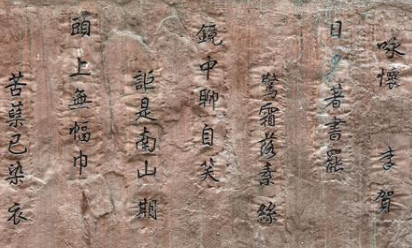 咏懷 李賀
日夕著書罷
驚霜落素絲
鏡中聊自笑
詎是南山期
頭上無幅巾
苦蘗已染衣